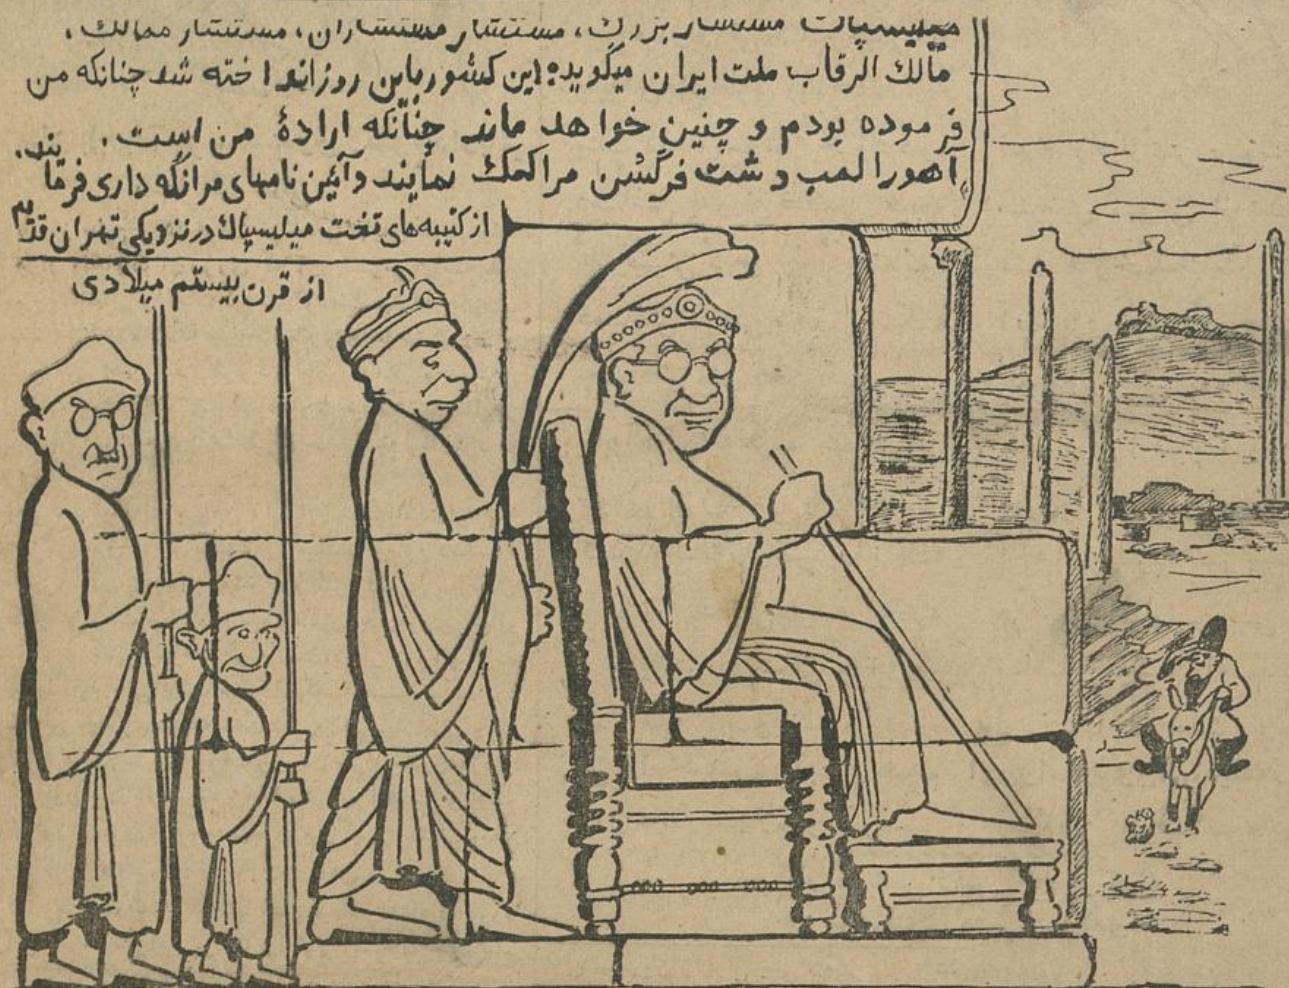 میلیسپاک مستشار بزرگ، مستشار مستشاران، مستشار ممالک،
مالک الرقاب ملت ایران میگوید: این کشور باین روز انداخته شد چنانکه من
فرموده بودم و چنین خواهد ماند چنانکه ارادهٔ من است.
آهورا لمب و شت فرگسن مرا کمک نمایند و آئین نامهای مرا نگه داری فرمایند.
از کتیبه‌های تخت میلیسپاک در نزدیکی تهران قدیم
از قرن بیستم میلادی